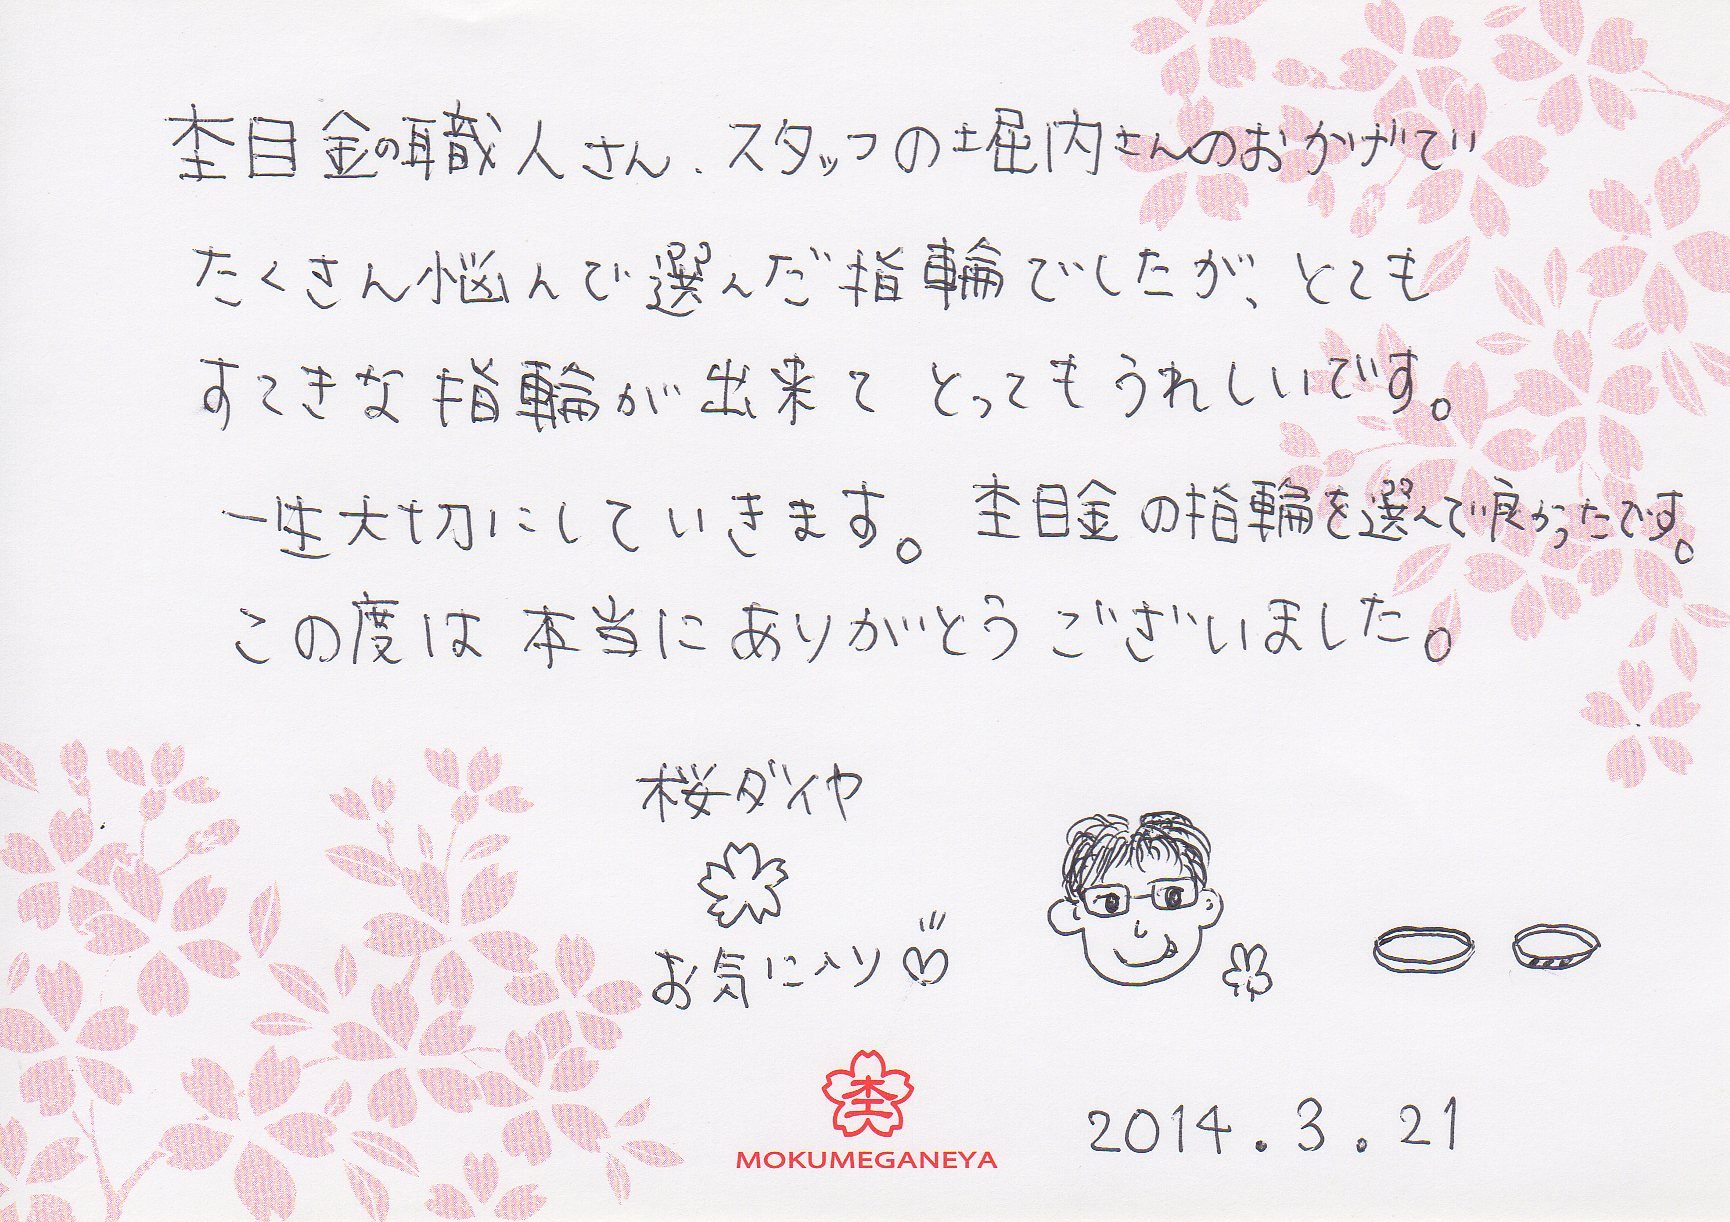 杢目金の職人さん、スタッフの堀内さんのおかげで
たくさん悩んで選んだ指輪でしたが、とても
すてきな指輪が出来てとってもうれしいです。
一生大切にしていきます。杢目金の指輪を選んで良かったです。
この度は本当にありがとうございました。
桜ダイヤ
お気に入り
杢
MOKUMEGANEYA
2014.3.21